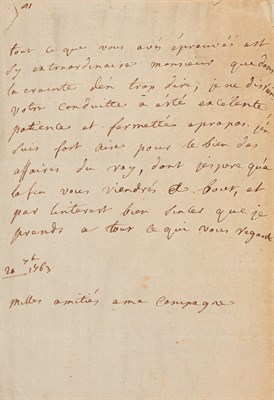 tout ce que vous avés éprouvéé est
sy extraordinaire monsieur que dans
la crainte den trop dire; je ne dis rien
votre conduitte a èsté excelente
patience et fermetté apropos. jen
suis fort aise pour le bien des
affaires du roy, dont jespere que
la fin vous viendrés a bout, et
par linterest bien sincer que je
prends a tout ce qui vous regarde
20 1763
milles amitiés ama compagne